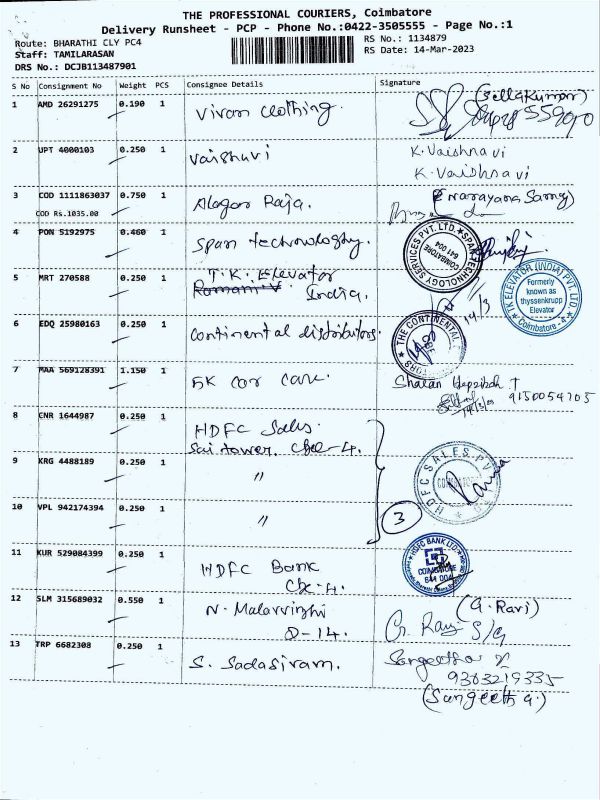 THE PROFESSIONAL COURIERS, Coimbatore
Delivery Runsheet - PCP - Phone No.:0422-3505555 - Page No.:1
Route: BHARATHI CLY PC4
RS No.: 1134879
Staff: TAMILARASAN
RS Date: 14-Mar-2023
DRS No.: DCJB113487901
S No Consignment No Weight PCS Consignee Details Signature
1 AMD 26291275 0.190 1 Vivan Clothing (Sellakumar)
2 UPT 4000103 0.250 1 Vaishuvi K. Vaishnavi
K. Vaidhnavi
3 COD 1111863037 0.750 1 Alagar Raja. (Narayana Samy)
COD Rs.1035.00
4 PON 5192975 0.460 1 Span technology.
SPAN TECHNOLOGY SERVICES PVT. LTD.
COIMBATORE
641 004
5 MRT 270588 0.250 1 T.K. Elevator
Ramani V India.
14/3
TK ELEVATOR (INDIA) PVT. LTD.
Formerly known as thyssenkrupp Elevator
Coimbatore - 4
6 EDQ 25980163 0.250 1 Continental distributors.
THE CONTINENTAL
7 MAA 569128391 1.150 1 5K car care. Sharan Hepzibah T
9150054705
8 CNR 1644987 0.250 1 HDFC Sales
Sai tower. Cbe-4.
9 KRG 4488189 0.250 1 "
HDFC SALES PVT
10 VPL 942174394 0.250 1 "
3
11 KUR 529084399 0.250 1 HDFC Bank
Cbe-4.
HDFC BANK LTD.
COIMBATORE
641 004
12 SLM 315689032 0.550 1 N. Malarvizhi (G. Ravi)
D-14. G. Ravi S/G
13 TRP 6682308 0.250 1 S. Sadasivam. Sangeetha
9363219335
(Sangeetha G.)